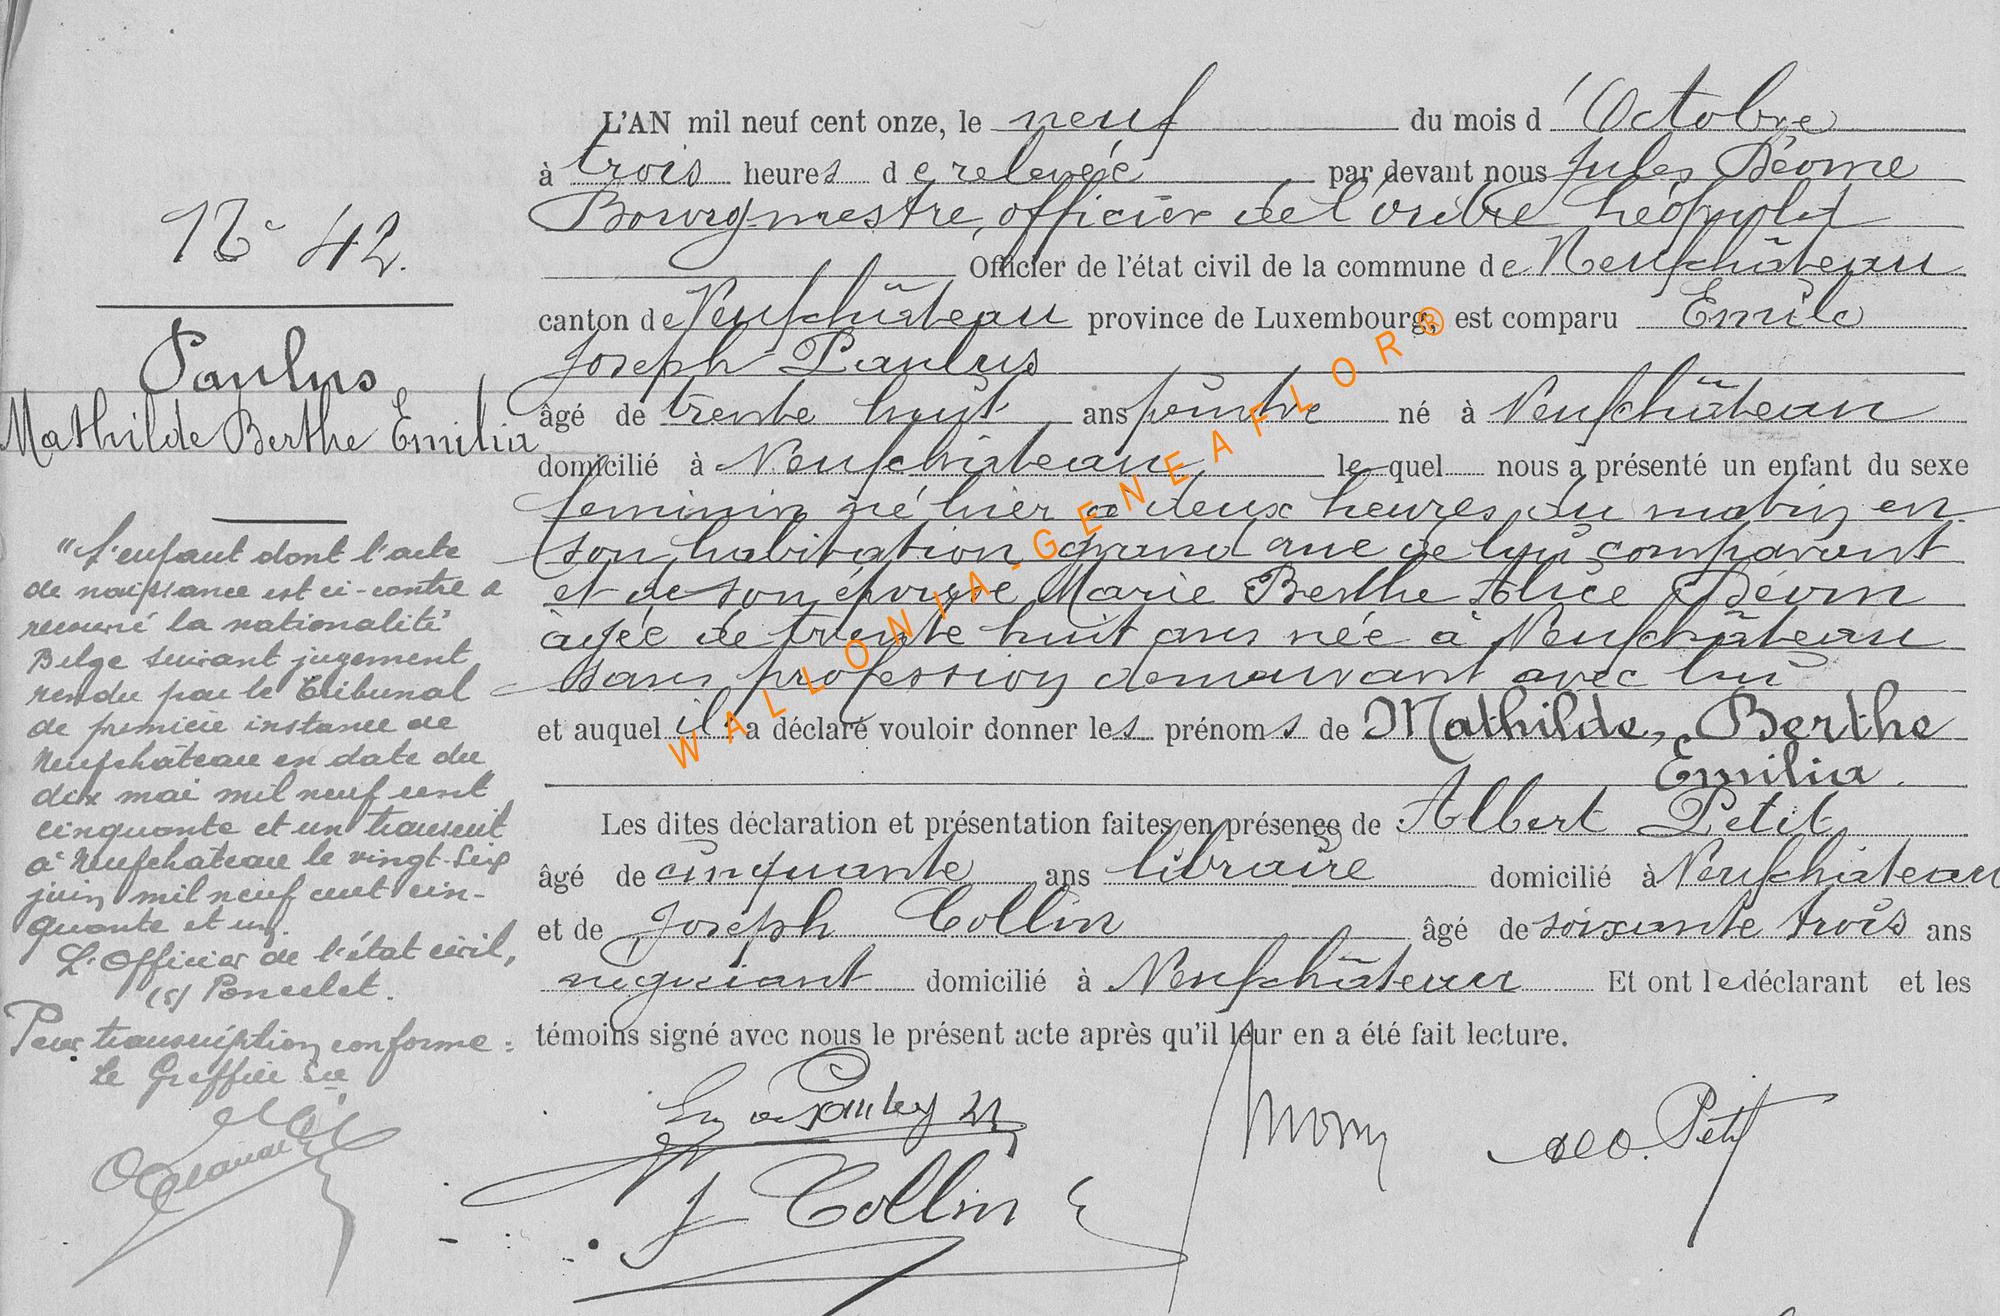 N° 42.
Paulus
Mathilde Berthe Emilia
"L'enfant dont l'acte
de naissance est ci-contre a
recouvré la nationalité
Belge suivant jugement
rendu par le Tribunal
de première instance de
Neufchâteau en date du
dix mai mil neuf cent
cinquante et un transcrit
à Neufchâteau le vingt-six
juin mil neuf cent cin-
quante et un.
L'Officier de l'état civil,
(s) Poncelet.
Pour transcription conforme :
Le Greffier
L'AN mil neuf cent onze, le neuf du mois d'Octobre
à trois heures de relevée par devant nous Jules
Bourgmestre, officier de l'ordre Léopold
Officier de l'état civil de la commune de Neufchâteau
canton de Neufchâteau province de Luxembourg, est comparu Emile
Joseph Paulus
âgé de trente huit ans peintre né à Neufchâteau
domicilié à Neufchâteau lequel nous a présenté un enfant du sexe
feminin né hier à deux heures du matin en
son habitation grand rue de lui comparant
et de son épouse Marie Berthe Alice
âgée de trente huit ans née à Neufchâteau
sans profession demeurant avec lui
et auquel il a déclaré vouloir donner les prénoms de Mathilde, Berthe
Emilia.
Les dites déclaration et présentation faites en présence de Albert Petit
âgé de cinquante ans libraire domicilié à Neufchâteau
et de Joseph Collin âgé de soixante trois ans
négociant domicilié à Neufchâteau Et ont le déclarant et les
témoins signé avec nous le présent acte après qu'il leur en a été fait lecture.
Paulus
Petit
J Collin
WALLONIA-GENEAFLOR®